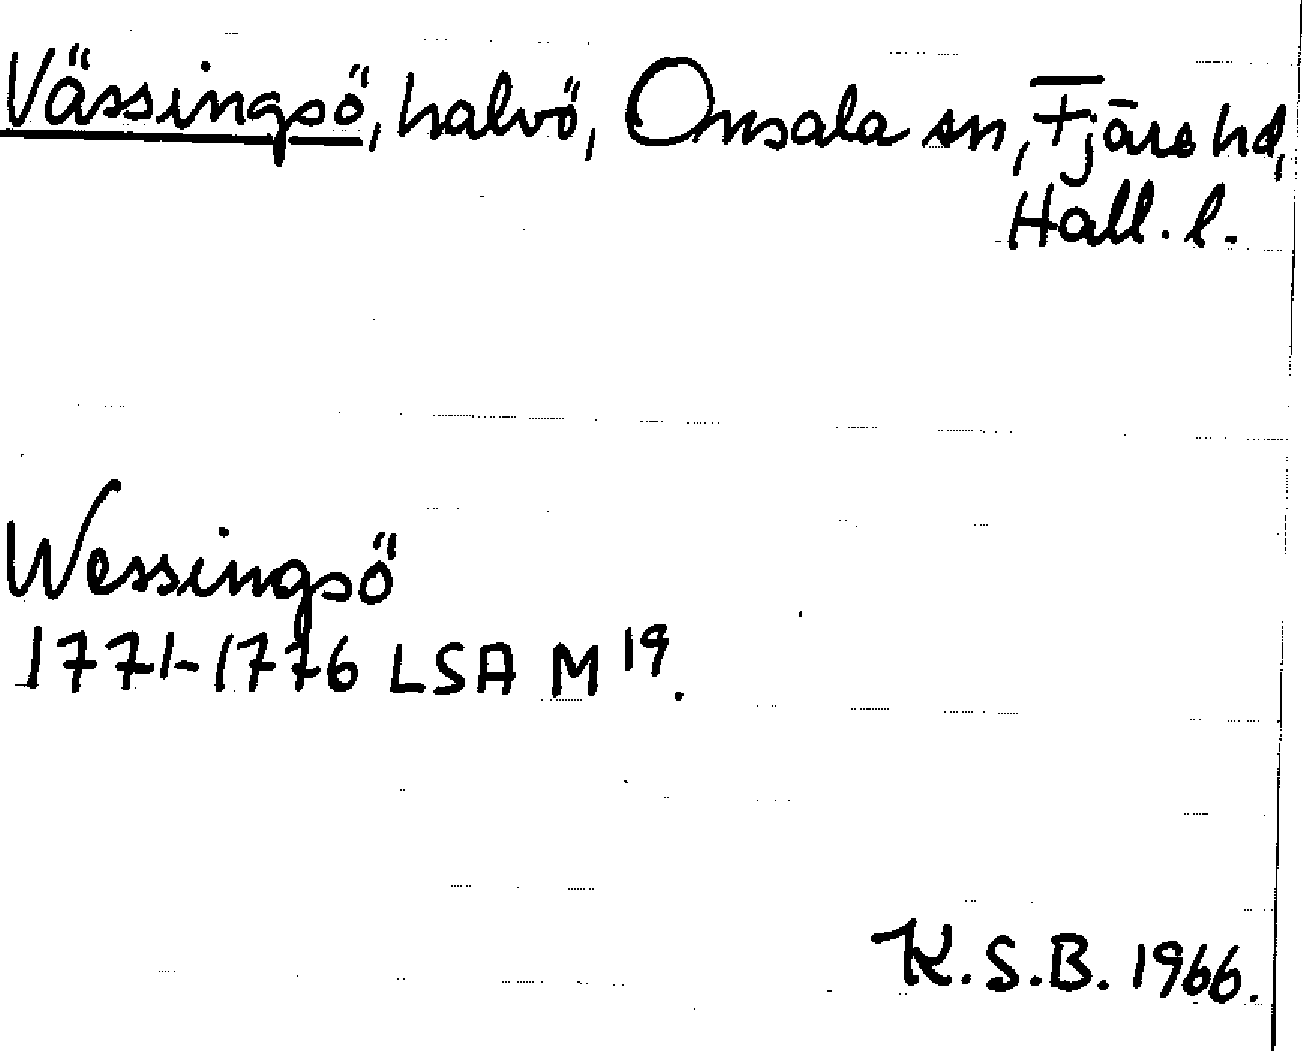 Vässingsö, halvö, Onsala sn, Fjäre hd,
Hall. l.
Wessingsö
1771-1776 LSA M 19.
K.S.B. 1966.